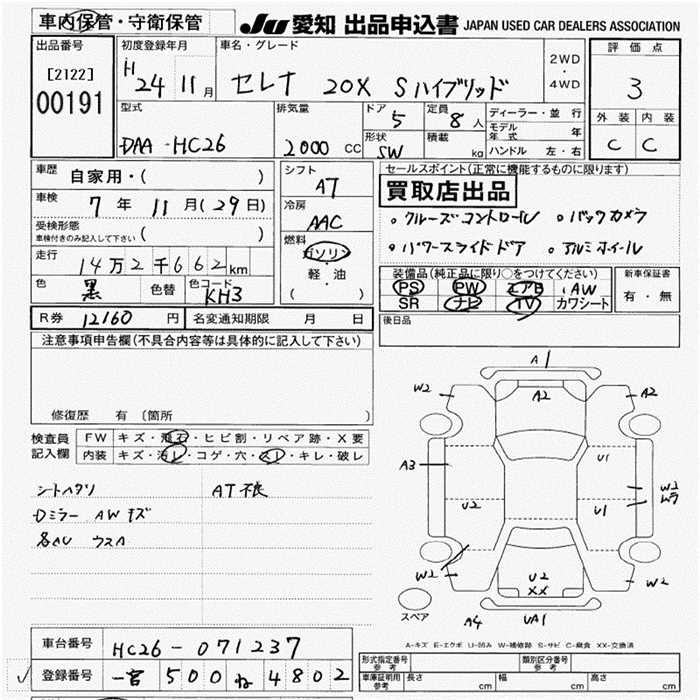 車内保管・守衛保管
JU 愛知 出品申込書 JAPAN USED CAR DEALERS ASSOCIATION
出品番号
[2122]
00191
初度登録年月
H 24 11月
車名・グレード
セレナ 20X Sハイブリッド
2WD
・
4WD
評価点
3
外装 内装
C C
型式
DAA-HC26
排気量
2000 CC
ドア 5
形状 SW
定員 8人
積載 kg
ディーラー・並行
モデル年式 年
ハンドル 左・右
車歴 自家用・( )
車検 7年 11月(29日)
受検形態
車検付きのみ記入して下さい ( )
走行 14万2千662km
色 黒 色替 色コード KH3
シフト AT
冷房 AAC
燃料
ガソリン
軽・油
( )
セールスポイント(正常に機能するものに限ります)
買取店出品
。クルーズコントロール 。バックカメラ
。パワースライドドア 。アルミホイール
装備品(純正品に限り○をつけてください)
PS PW エアB AW
SR ナビ TV カワシート
新車保証書
有・無
R券 12160円 名変通知期限 月 日
後日品
注意事項申告欄(不具合内容等は具体的に記入して下さい)
修復歴 有〔箇所 〕
検査員記入欄
FW キズ・飛石・ヒビ割・リペア跡・X要
内装 キズ・汚レ・コゲ・穴・スレ・キレ・破レ
シートヘタリ AT不良
Dミラー AWキズ
各AU ウスA
A1
W2 A2 A2
A3 U1
U2 U1 W2
W2 U2 XX W2
スペア A4 UA1
A-キズ E-エクボ U-凹み W-補修跡 S-サビ C-腐食 XX-交換済
車台番号 HC26-071237
登録番号 一宮 500 ね 4802
形式指定番号 参考 類別区分番号 参考
車庫証明用 参考 長さ cm 幅 cm 高さ cm